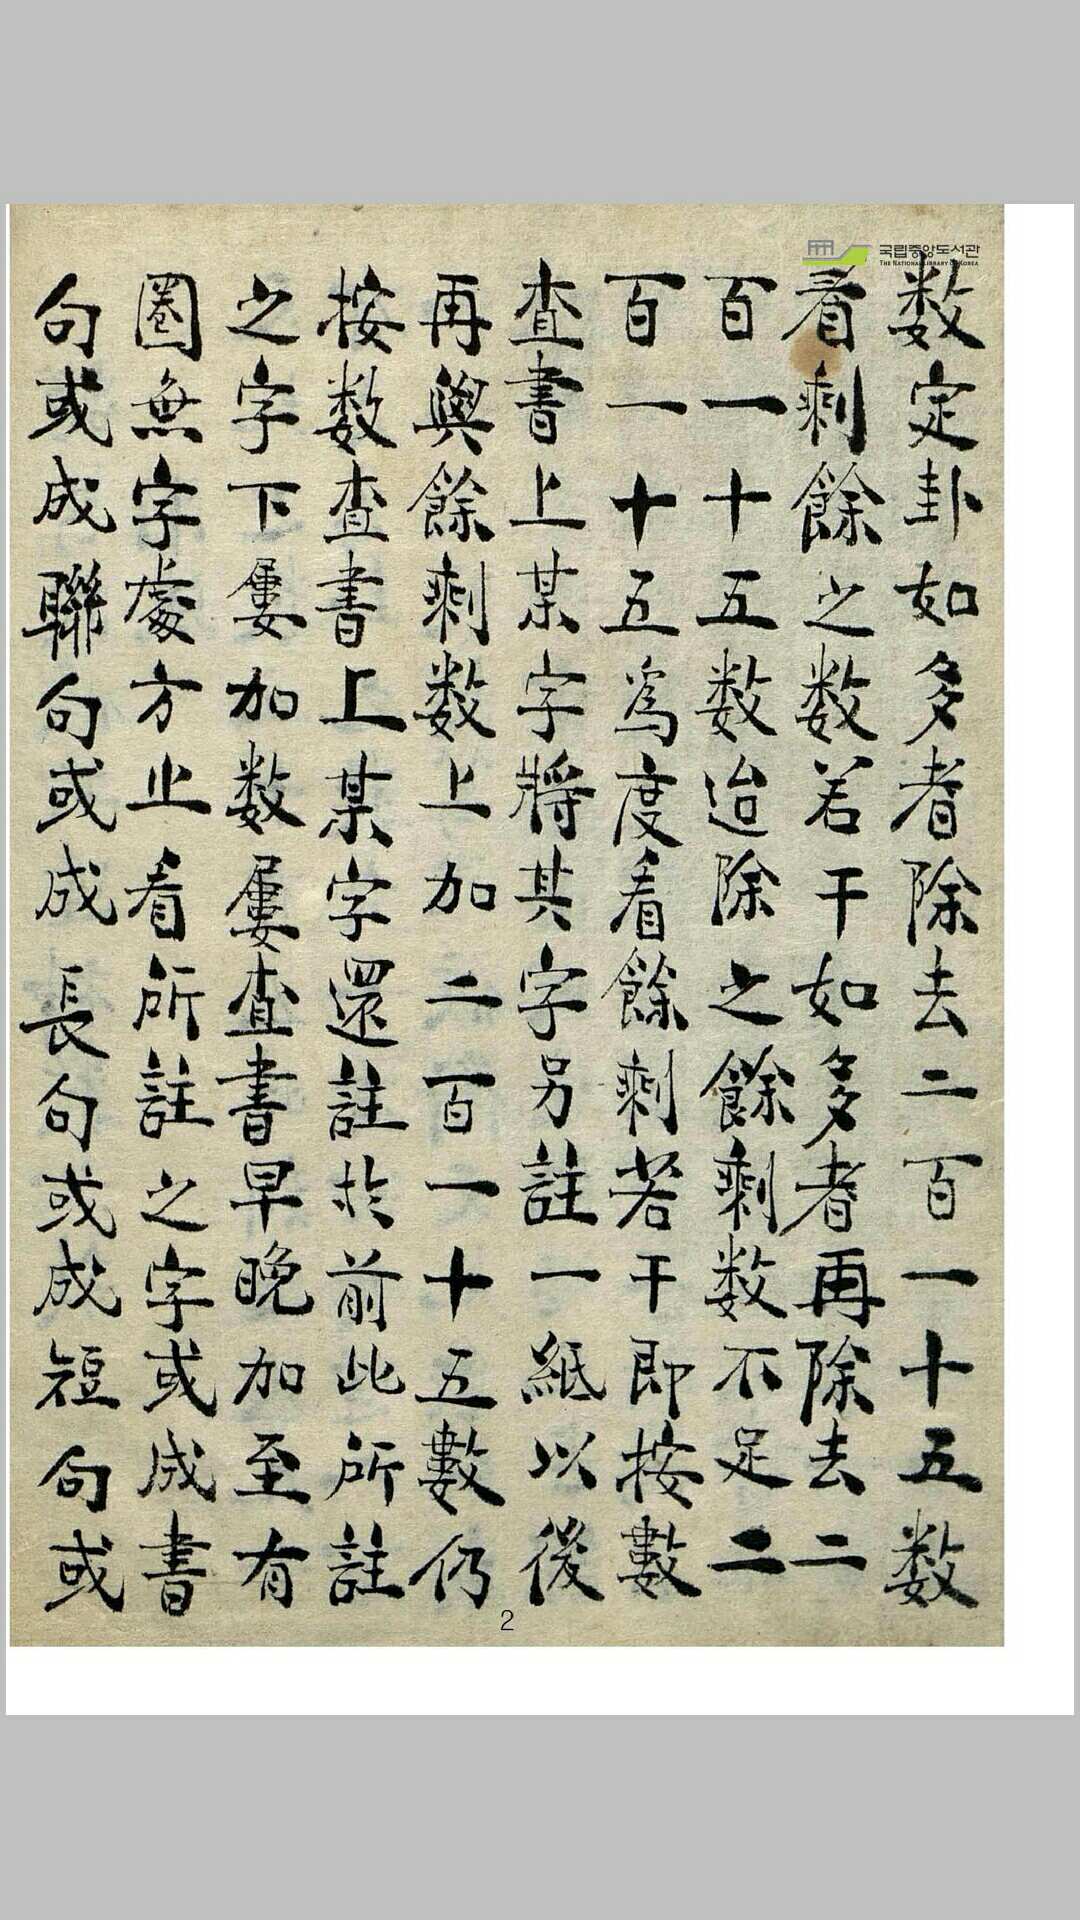 국립중앙도서관
THE NATIONAL LIBRARY OF KOREA
数定卦如多者除去二百一十五数
看剩餘之数若干如多者再除去二
百一十五数迨除之餘剩数不足二
百一十五為度看餘剩若干即按數
查書上某字將其字另註一紙以後
再與餘剩数上加二百一十五數仍
按数查書上某字還註於前此所註
之字下屢加数屢查書早晚加至有
圈無字處方止看所註之字或成書
句或成聯句或成長句或成短句或
2